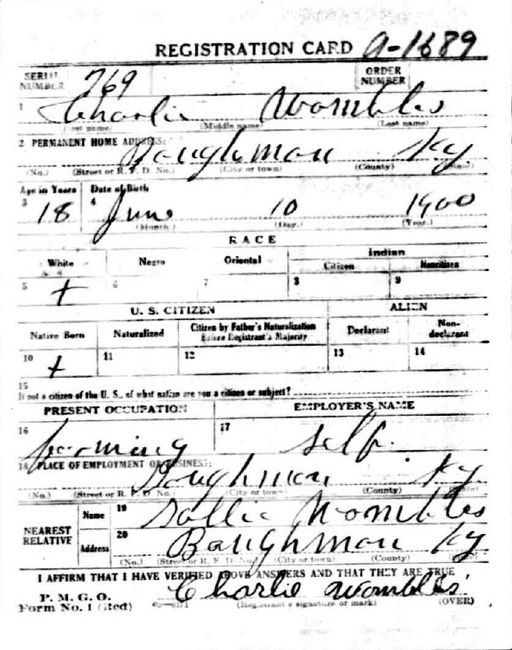 REGISTRATION CARD a-1689
SERIAL NUMBER 769 ORDER NUMBER
1 Charlie Wombles
(First name) (Middle name) (Last name)
2 PERMANENT HOME ADDRESS: Baughman Ky
(No.) (Street or R. F. D. No.) (City or town) (County) (State)
Age in Years Date of Birth
3 18 4 June 10 1900
(Month.) (Day.) (Year.)
RACE
White Negro Oriental Indian
Citizen Noncitizen
5 x 6 7 8 9
U. S. CITIZEN ALIEN
Native Born Naturalized Citizen by Father's Naturalization Before Registrant's Majority Declarant Non-declarant
10 x 11 12 13 14
15
If not a citizen of the U. S., of what nation are you a citizen or subject?
PRESENT OCCUPATION EMPLOYER'S NAME
16 farming 17 self.
18 PLACE OF EMPLOYMENT OR BUSINESS: Baughman Ky.
(No.) (Street or R. F. D. No.) (City or town) (County) (State)
NEAREST RELATIVE
Name 19 Sallie Wombles
Address 20 Baughman Ky
(No.) (Street or R. F. D. No.) (City or town) (County)
I AFFIRM THAT I HAVE VERIFIED ABOVE ANSWERS AND THAT THEY ARE TRUE
P. M. G. O.
Form No. 1 (Red) Charlie Wombles
(Registrant's signature or mark) (OVER)